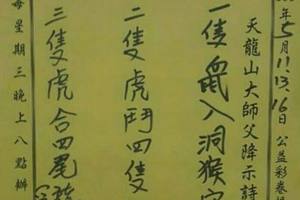 年5月11.13.16日公益彩卷
天龍山大師父降示詩
一隻鼠入洞猴
二隻虎鬥四隻
三隻虎合四尾
每星期三晚上八點辦